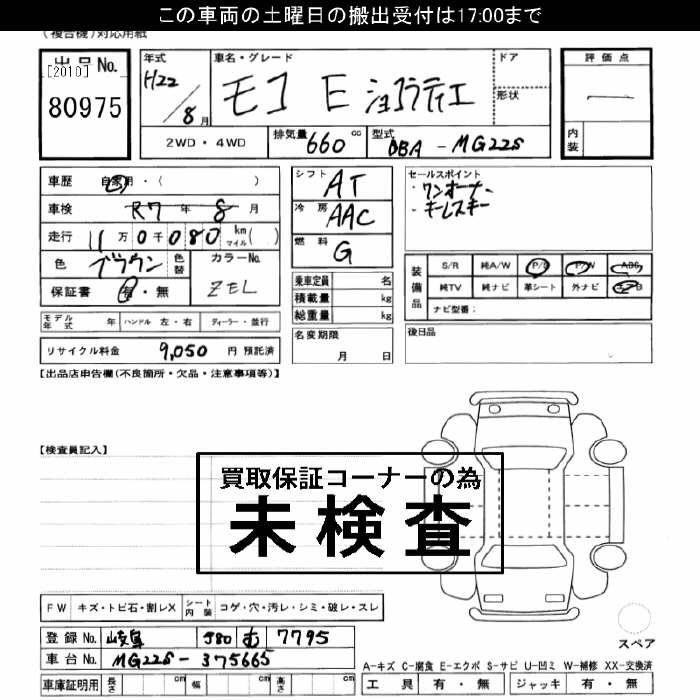 この車両の土曜日の搬出受付は17:00まで
(複合機)対応用紙
出品No.
[2010]
80975
年式
H22/8月
車名・グレード
モコ E ショコラティエ
ドア
形状
評価点
内装
2WD・4WD
排気量 660 cc
型式 DBA-MG22S
車歴 自家用・( )
車検 R7年8月
走行 11万0千080 km マイル( )
色 ブラウン 色替
カラーNo. ZEL
保証書 有・無
モデル年式 年 ハンドル 左・右 ディーラー・並行
リサイクル料金 9,050 円 預託済
シフト AT
冷房 AAC
燃料 G
乗車定員 名
積載量 kg
総重量 kg
名変期限
月 日
セールスポイント
・ワンオーナー
・キーレスキー
装備品
S/R 純A/W P/S P/W ABS
純TV 純ナビ 革シート 外ナビ
ナビ型番:
後日品
【出品店申告欄(不良箇所・欠品・注意事項等)】
【検査員記入】
買取保証コーナーの為
未検査
FW キズ・トビ石・割レX シート内装 コゲ・穴・汚レ・シミ・破レ・スレ
登録No. 岐阜 580 む 7795
車台No. MG22S-375665
車庫証明用 長さ cm 幅 cm 高さ cm
スペア
A-キズ C-腐食 E-エクボ S-サビ U-凹ミ W-補修 XX-交換済
工具 有・無 ジャッキ 有・無